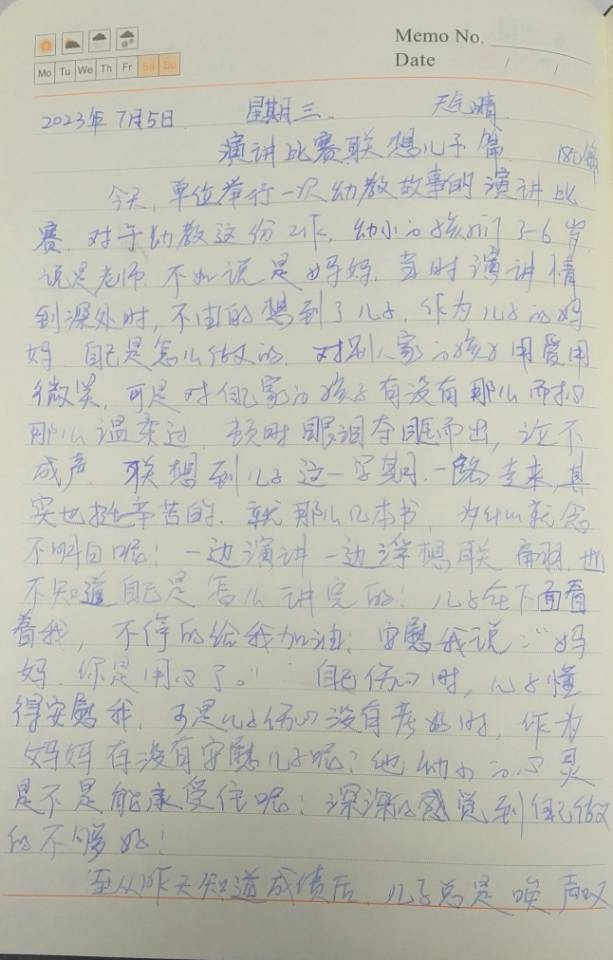 Memo No.
Date / /
Mo Tu We Th Fr Sa Su
2023年7月5日 星期三 天气晴
演讲比赛联想儿子篇
今天,单位举行一次幼教故事的演讲比
赛,对于幼教这份工作,幼小的孩子们3-6岁
说是老师,不如说是妈妈,当时演讲情
到深处时,不由的想到了儿子,作为儿子的妈
妈,自己是怎么做的,对别人家的孩子用爱用
微笑,可是对自己家的孩子有没有那么
那么温柔过,顿时眼泪夺眶而出,泣不
成声,联想到儿子这一学期,一路走来,其
实也挺辛苦的,就那么几本书,为什么就念
不明白呢!一边演讲一边浮想联翩,也
不知道自己是怎么讲完的!儿子在下面看
着我,不停的给我加油!安慰我说:“妈
妈,你是用心了。” 自己伤心时,儿子懂
得安慰我,可是儿子伤心没有考好时,作为
妈妈有没有安慰儿子呢?他幼小的心灵
是不是能承受住呢!深深的感觉到自己做
的不够好!
至从昨天知道成绩后,儿子总是唉声叹